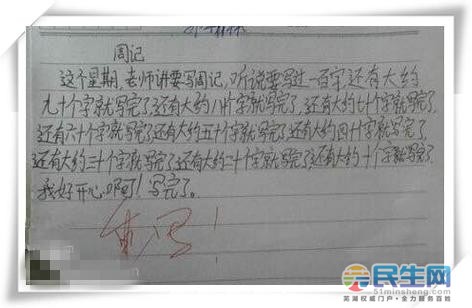 周记
这个星期,老师讲要写周记,听说要写过一百字,还有大约
九十个字就写完了,还有大约八十个字就写完了,还有大约七十个字就写完了,
还有六十个字就写完了还有大约五十个字就写完了还有大约四十个字就写完了
还有大约三十个字就写完了还有大约二十个字就写完了还有大约十个字就写完了
我好开心啊!写完了。
民生网
51minsheng.com
芜湖权威门户·全力服务百姓